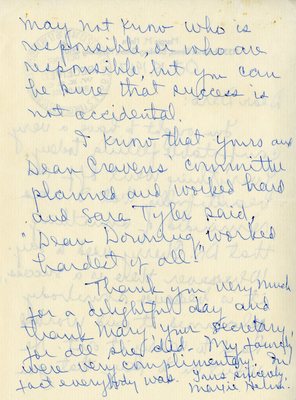 may not know who is
responsible, or who are
responsible, but you can
be sure that success is
not accidental.
I know that yours and
Dean Cravens' committee
planned and worked hard
and Sara Tyler said,
"Dean Downing worked
hardest of all!"
Thank you very much
for a delightful day and
thank Mary, your secretary,
for all she did. My family
were very complimentary. In
fact everybody was. Yours sincerely,
Margie Helm